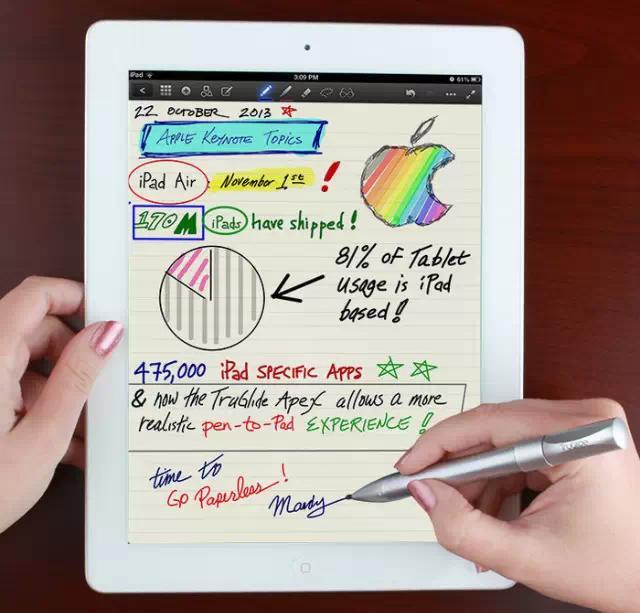 iPad
3:09 PM
61%
22 OCTOBER 2013
APPLE KEYNOTE TOPICS
iPad Air : November 1st !
170M iPads have shipped!
81% of Tablet
usage is iPad
based!
475,000 iPad SPECIFIC APPS
& now the TruGlide Apex allows a more
realistic pen-to-Pad EXPERIENCE!
time to
Go Paperless!
Mandy